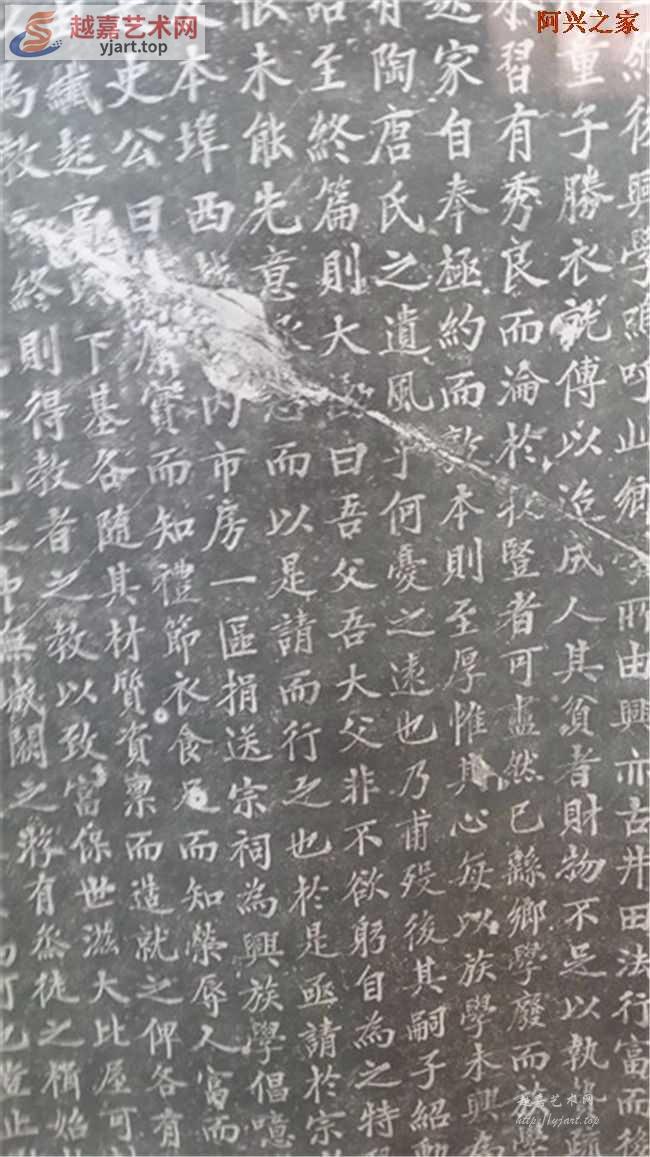 越嘉艺术网
yjart.top
阿兴之家
後興學焉吁此鄉學所由興亦古井田法行富而後
童子勝衣就傅以迨成人其貧者財物不足以執
習有秀良而淪於牧豎者可盡然已縣鄉學廢而族
起家自奉極約而敦本則至厚惟其心每以族學未興為
有陶唐氏之遺風乎何憂之遠也乃甫歿後其嗣子紹勳
語至終篇則大慟曰吾父吾大父非不欲躬自為之特
恨未能先意承志而以是請而行之也於是亟請於宗
本埠西城內市房一區捐送宗祠為興族學倡噫
史公曰廩實而知禮節衣食足而知榮辱人富而
纖起高下基各隨其材質資稟而造就之俾各有
為教終則得教者之教以致富保世滋大比屋可
之中無城闕之有徒之始
可也豈止
越嘉艺术网
http://yjart.top